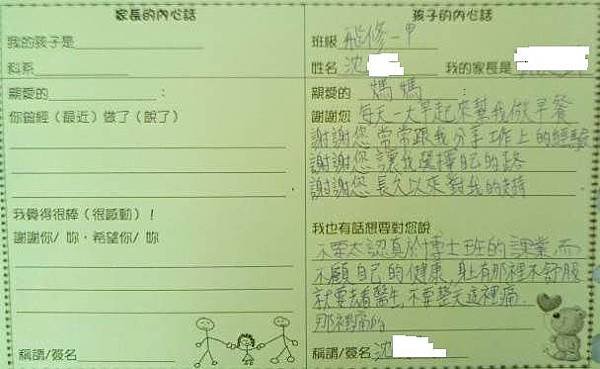 家長的內心話
我的孩子是
科系
親愛的 :
你曾經(最近)做了(說了)
我覺得很棒(很感動)!
謝謝你/妳,希望你/妳
稱謂/簽名
孩子的內心話
班級 飛修一甲
姓名 沈 我的家長是
親愛的 媽媽 :
謝謝您 每天一大早起來幫我做早餐
謝謝您 常常跟我分享工作上的經驗
謝謝您 讓我選擇自己的路
謝謝您 長久以來對我的支持
我也有話想要對您說
不要太認真於博士班的課業,而
不顧自己的健康,身上有那裡不舒服
就要去看醫生,不要整天這裡痛
那裡痛的
稱謂/簽名 沈